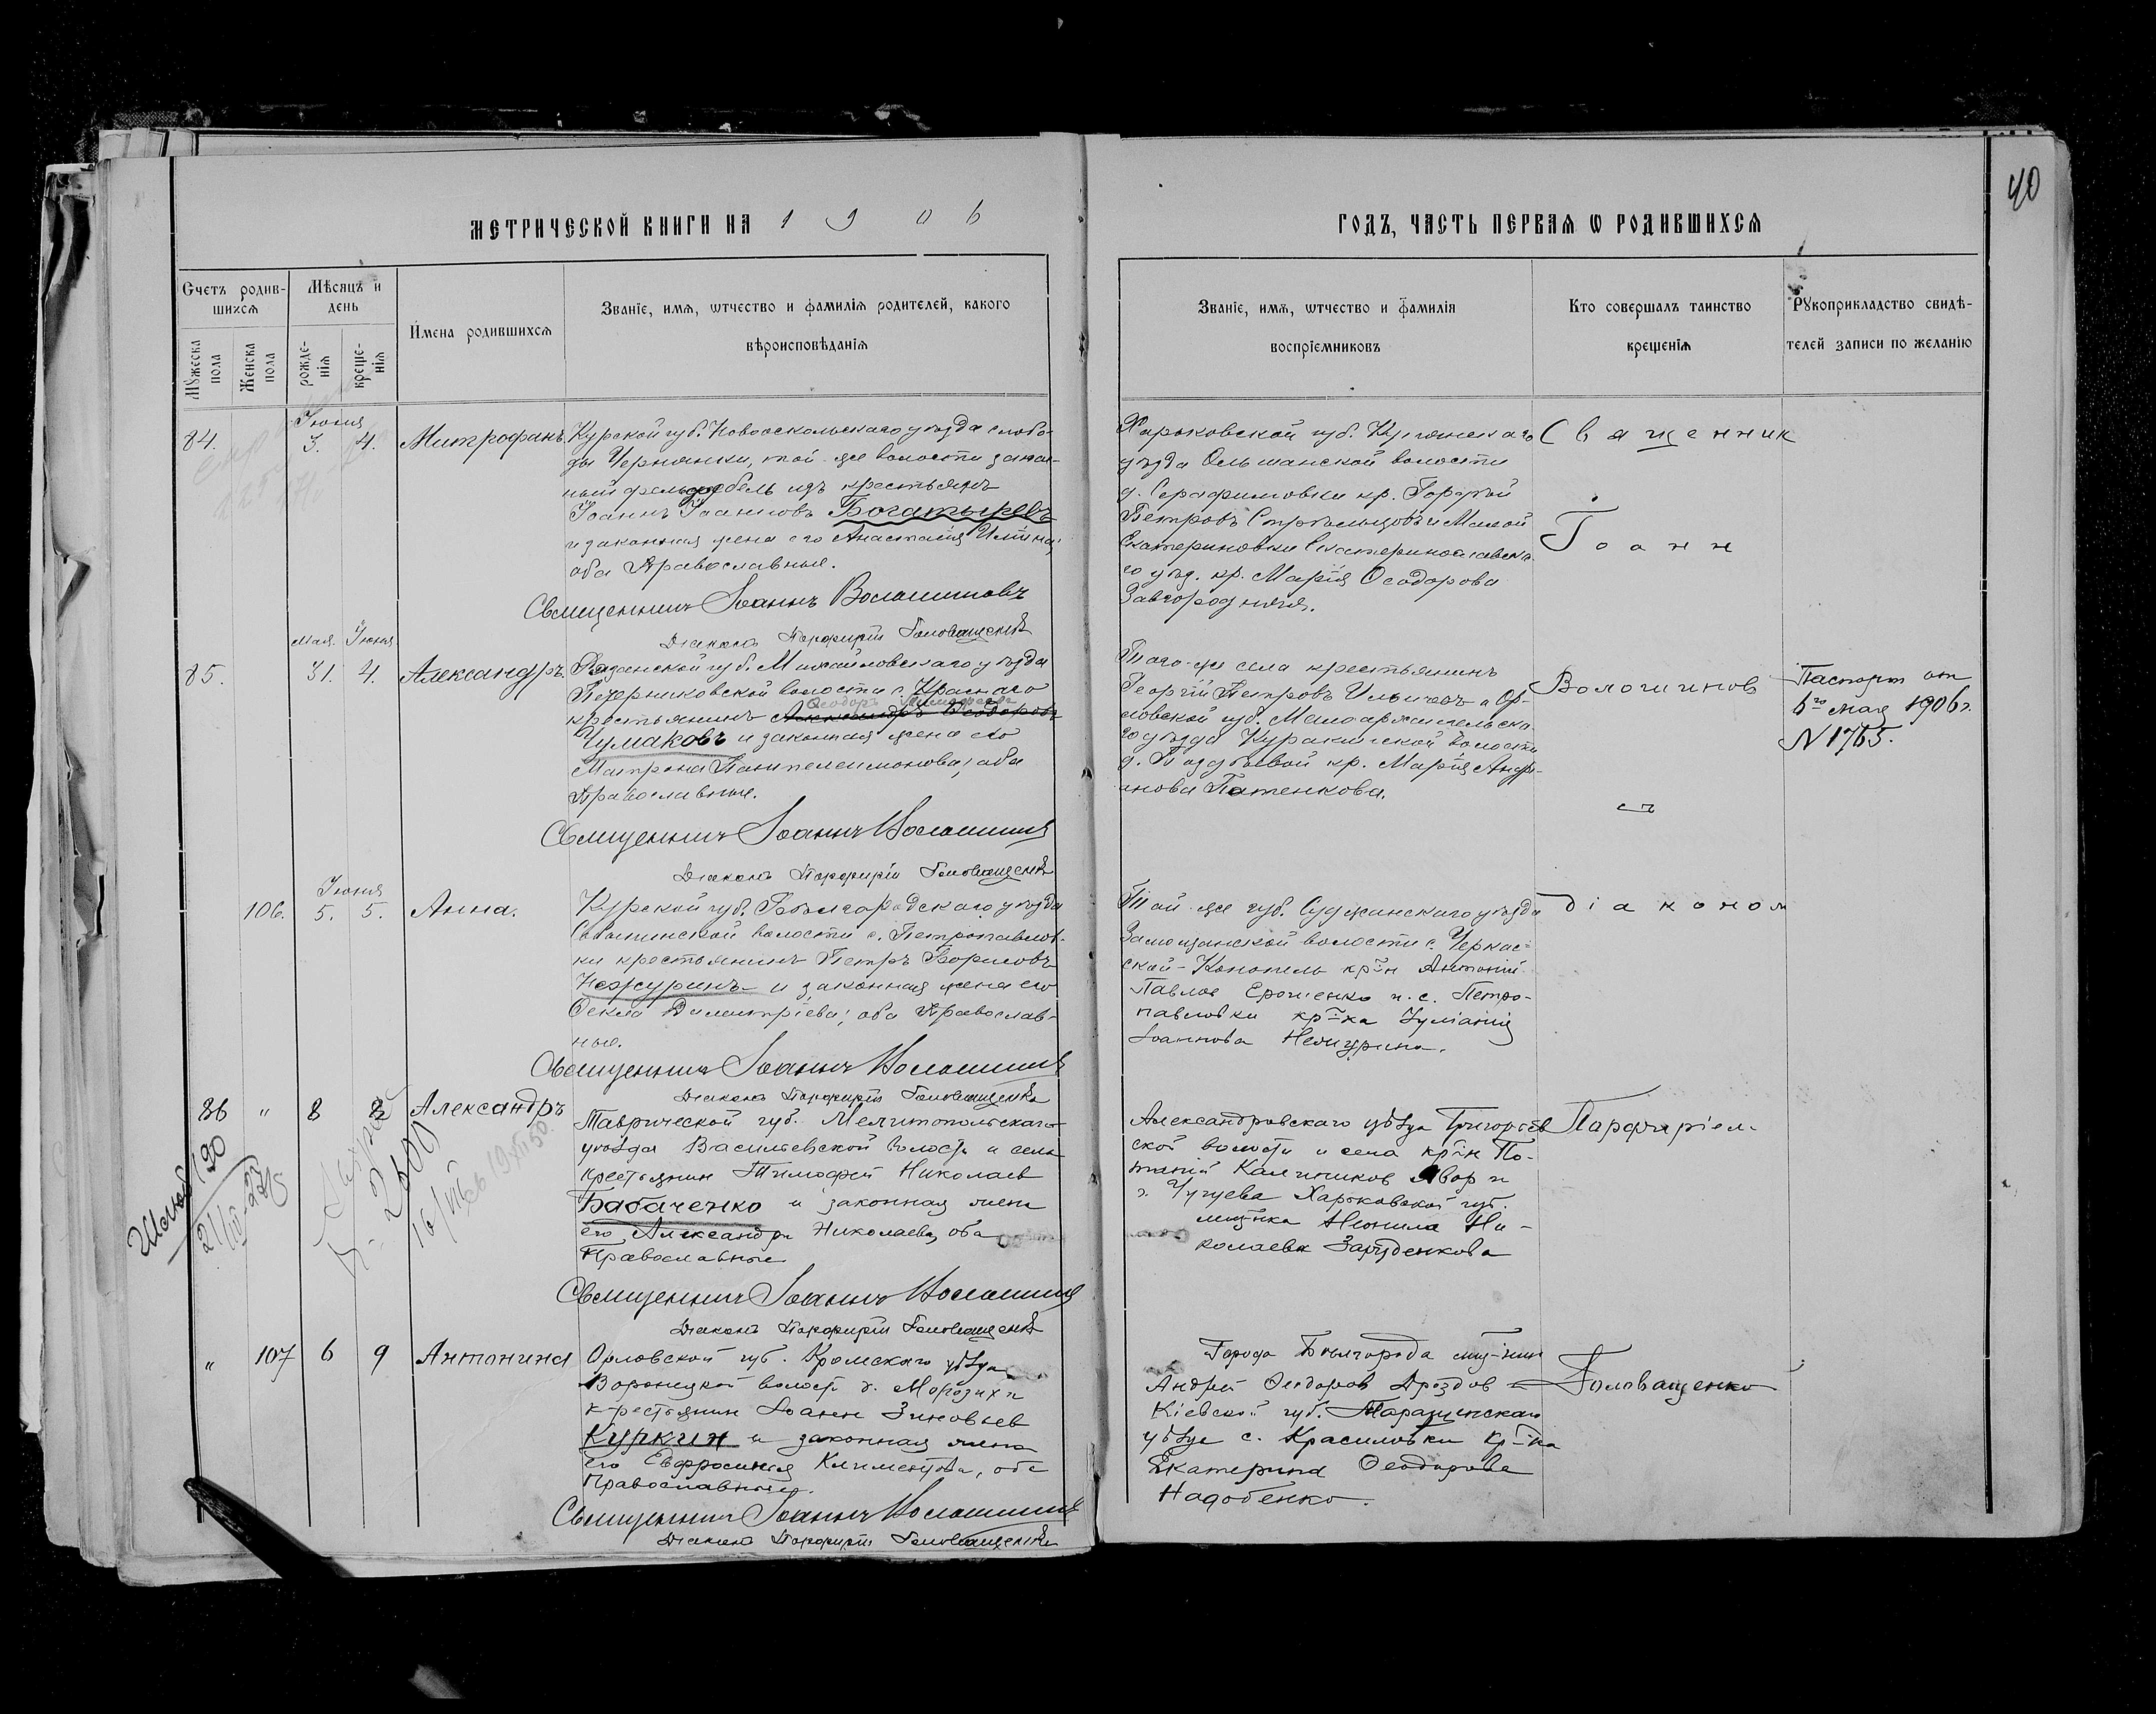 40
МЕТРИЧЕСКОЙ КНИГИ НА 1906
ГОДЪ, ЧАСТЬ ПЕРВАЯ Ѡ РОДИВШИХСЯ
Счетъ родив-
шихся
Мѣсяцъ и
день
Имена родившихся
Званіе, имя, ѡтчество и фамилія родителей, какого
вѣроисповѣданія
Мꙋжеска
пола
Женска
пола
рожде-
нія
креще-
нія
Званіе, имя, ѡтчество и фамилія
воспріемниковъ
Кто совершалъ таинство
крещенія
Рꙋкоприкладство свидѣ-
телей записи по желанію
Іюня
84. 3. 4. Митрофанъ
Курской губ. Новооскольскаго уѣзда слобо-
ды Чернянки, той же волости запас-
ный фельдфебель изъ крестьянъ
Іоаннъ Іоанновъ Богатыревъ
и законная жена его Анастасія
оба Православные.
Священникъ Іоаннъ Волошиновъ
Діаконъ Порфирій Головащенко
Харьковской губ. Купянскаго
уѣзда Ольшанской волости
д. Серафимовки кр.
Петровъ Стрѣльцовъ и Малой
Екатериновки Екатеринославска-
го уѣз. кр. Марія Ѳеодорова
Завгородняя.
Священник
Іоанн
Мая. Іюня
85. 31. 4. Александръ.
Рязанской губ. Михайловскаго уѣзда
Печерниковской волости с. Краснаго
Ѳеодоръ
крестьянинъ Александръ Ѳеодоровъ
Чумаковъ и законная жена его
Матрона Пантелеимонова; оба
Православные.
Священникъ Іоаннъ Волошиновъ
Діаконъ Порфирій Головащенко
Того-же села крестьянинъ
Георгій Петровъ и Ор-
ловской губ. Малоархангельска-
го уѣзда Куракинской волости
д. кр. Марія Андрі-
анова Патенкова.
Волошинов
съ
Паспорт от
6го мая 1906 г.
N 1765.
Іюня
106. 5. 5. Анна.
Курской губ. Бѣлгородскаго уѣзда
волости с. Петропавлов-
ки крестьянинъ Петръ Борисовъ
Нежуринъ и законная жена его
Ѳекла Димитріева; оба Православ-
ные.
Священникъ Іоаннъ Волошиновъ
Діаконъ Порфирій Головащенко
Той-же губ. Суджанскаго уѣзда
Замощанской волости с. Черкас-
ской-Конопель кр-н Антоній
Павлов Ерошенко и с. Петро-
павловки кр-ка Іуліанія
Іоаннова Нежурина.
діаконом
86 " 8 8 Александръ
Таврической губ. Мелитопольскаго
уѣзда Васильевской волости и села
крестьянин Тимофей Николаев
Бабаченко и законная жена
его Александра Николаева, оба
Православные
Священникъ Іоаннъ Волошиновъ
Діаконъ Порфирій Головащенко
Александровскаго уѣзда Григорьев-
ской волости и села кр-н По-
Калитиков и
г. Чугуева Харьковской губ.
мещ-нка Неонила Ни-
колаева Заруденкова
Порфиріем
" 107 6 9 Антонина
Орловской губ. Кромскаго уѣзда
Воронецкой волости д. Морозихи
крестьянин Іоанн Зиновьев
Куркин и законная жена
его Евфросинія Климентова, оба
Православные.
Священникъ Іоаннъ Волошиновъ
Діаконъ Порфирій Головащенко
Города Бѣлгорода мещ-нин
Андрей Ѳеодоров Дроздов и
Кіевской губ. Таращанскаго
уѣзда с. Красиловки кр-ка
Екатерина Ѳеодорова
Надобенко.
Головащенко